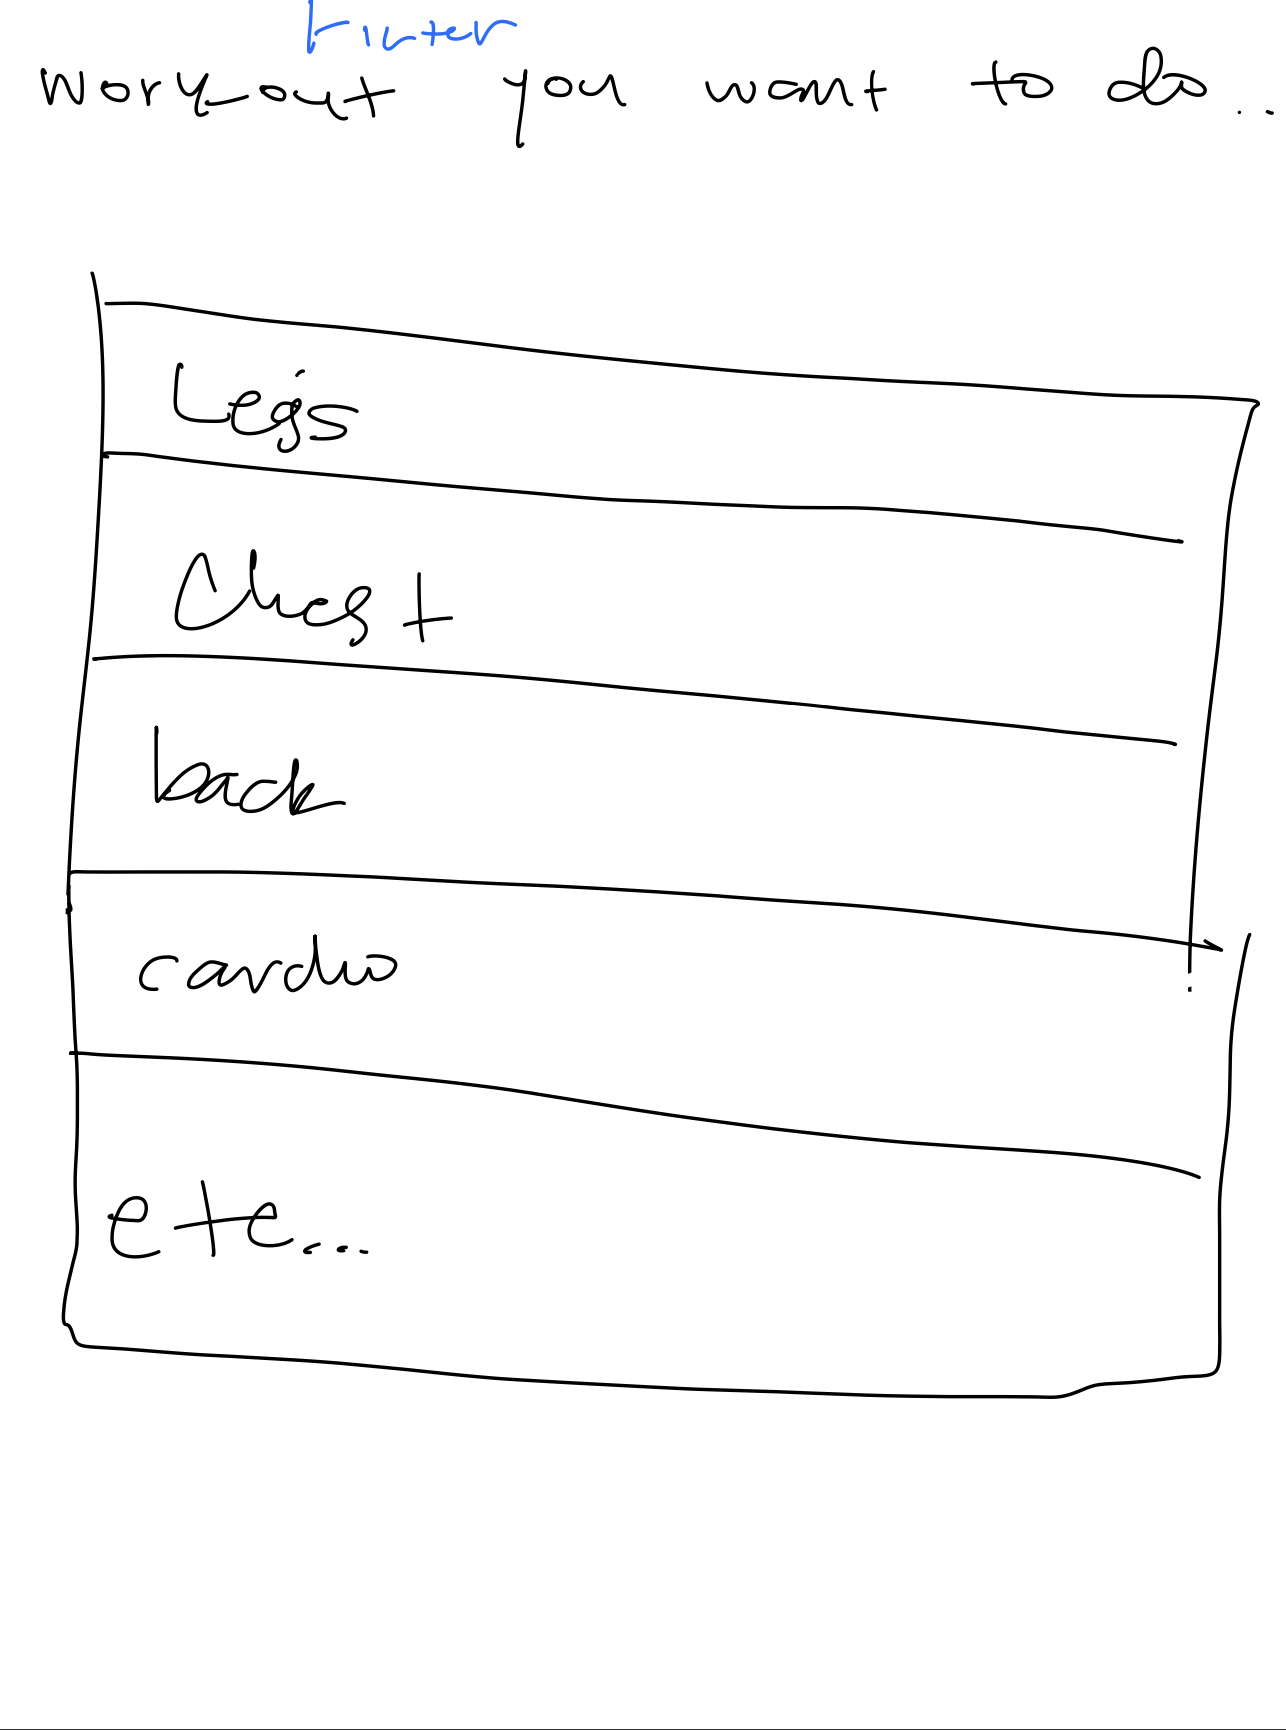 Filter
workout you want to do..
Legs
Chest
back
cardio
etc...